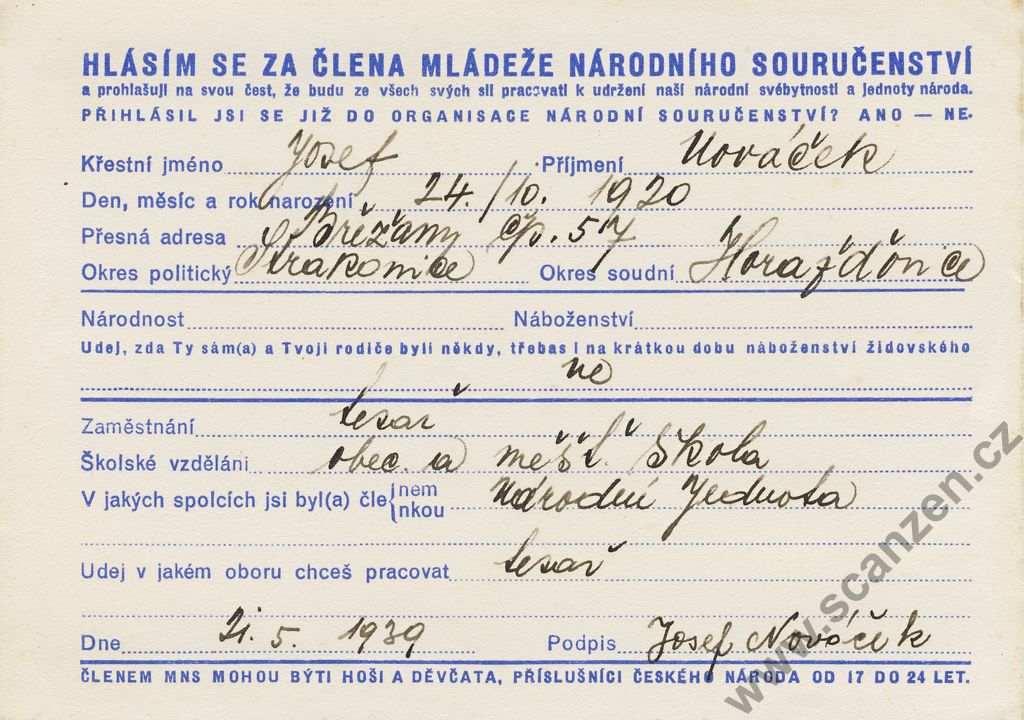 HLÁSÍM SE ZA ČLENA MLÁDEŽE NÁRODNÍHO SOURUČENSTVÍ
a prohlašuji na svou čest, že budu ze všech svých sil pracovati k udržení naší národní svébytnosti a jednoty národa.
PŘIHLÁSIL JSI SE JIŽ DO ORGANISACE NÁRODNÍ SOURUČENSTVÍ? ANO — NE.
Křestní jméno Josef Příjmení Nováček
Den, měsíc a rok narození 24./10. 1920
Přesná adresa Břežany čp. 57
Okres politický Strakonice Okres soudní Horažďovice
Národnost Náboženství
Udej, zda Ty sám(a) a Tvoji rodiče byli někdy, třebas i na krátkou dobu náboženství židovského
ne
Zaměstnání tesař
Školské vzdělání obec. a měšť. škola
V jakých spolcích jsi byl(a) čle{nem nkou Národní Jednota
Udej v jakém oboru chceš pracovat tesař
Dne 21. 5. 1939 Podpis Josef Nováček
ČLENEM MNS MOHOU BÝTI HOŠI A DĚVČATA, PŘÍSLUŠNÍCI ČESKÉHO NÁRODA OD 17 DO 24 LET.
www.scanzen.cz